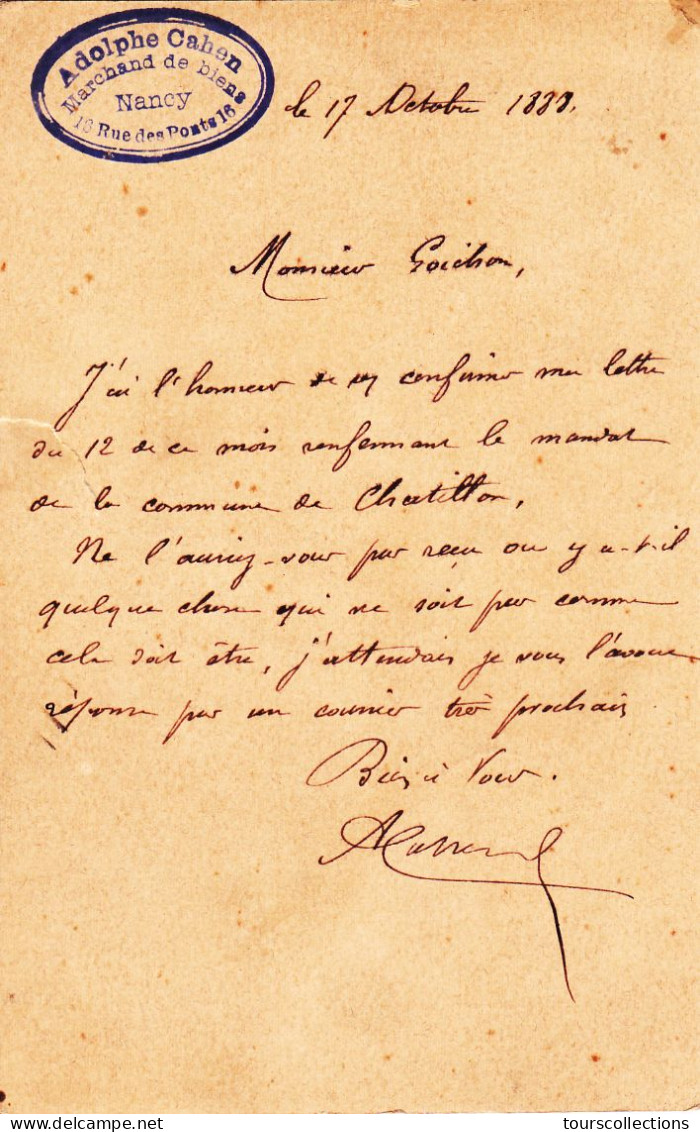 Adolphe Cahen
Marchand de biens
Nancy
16 Rue des Ponts 16
le 17 Octobre 1888.
Monsieur
J'ai l'honneur de confirmer ma lettre
du 12 de ce mois renfermant le mandat
de la commune de Chatillon,
Ne l'auriez-vous pas reçu ou y a-t-il
quelque chose qui ne soit pas comme
cela doit être, j'attendais je vous l'avoue
réponse par un courrier très prochain
Bien à Vous.
ACahen
delcampe.net
tourscollections